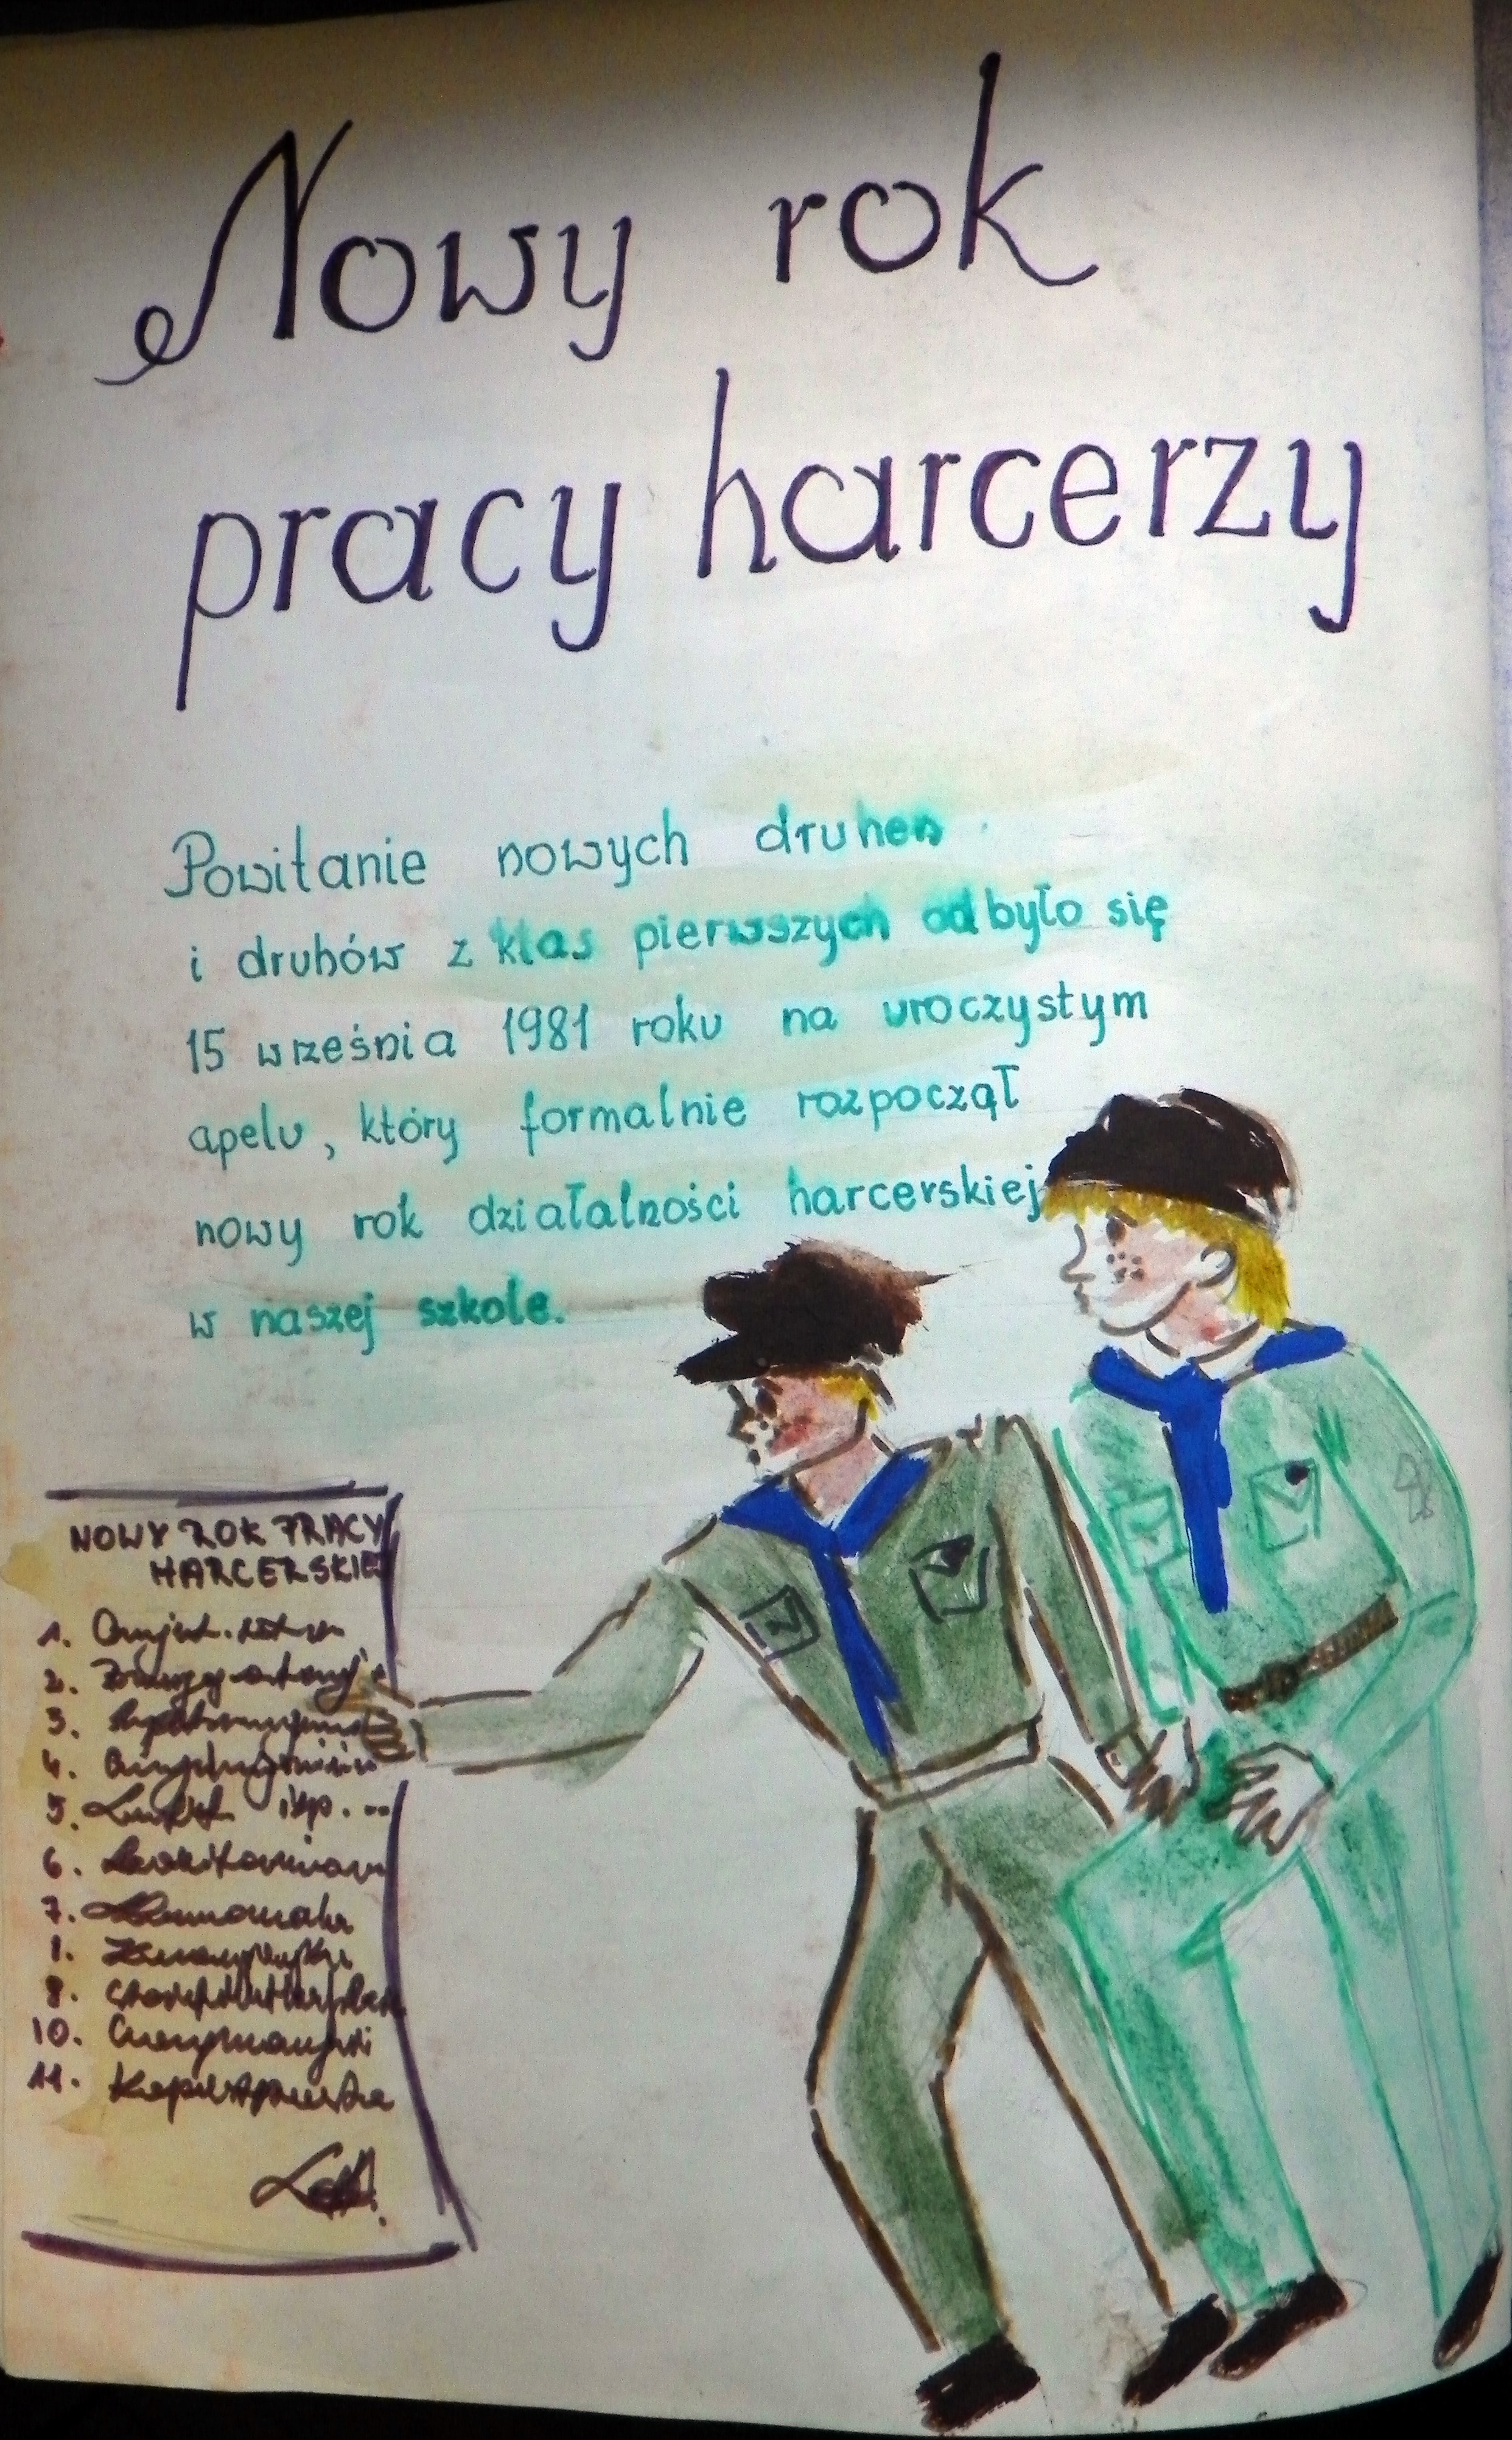 Nowy rok
pracy harcerzy
Powitanie nowych druhen
i druhów z klas pierwszych odbyło się
15 września 1981 roku na uroczystym
apelu, który formalnie rozpoczął
nowy rok działalności harcerskiej
w naszej szkole.
NOWY ROK PRACY
HARCERSKIEJ
1.
2.
3.
4.
5.
6.
7.
1.
8.
10.
11.